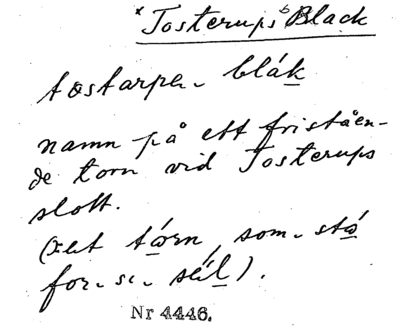 × Tosterups Black
tostarpa- blák
namn på ett fristående
de torn vid Tosterups
slott.
(ett tǻrn, som- stǻ
for- sı- sél).
Nr 4446.